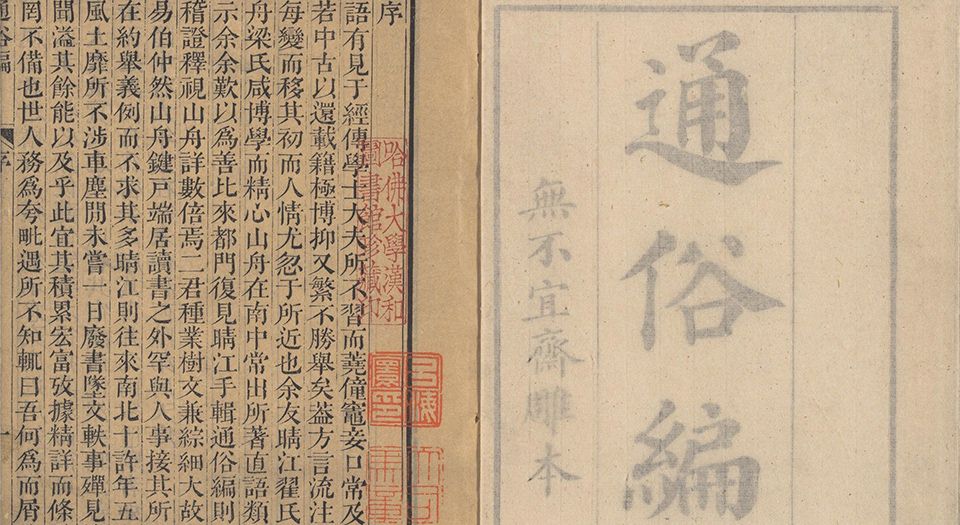 通俗編
無不宜齋雕本
序
語有見于經傳學士大夫所不習而蕘僮竈妾口常及
若中古以還載籍極博抑又繁不勝舉矣葢方言流注
每變而移其初而人情尤忽于所近也余友晴江翟氏
舟梁氏咸博學而精心山舟在南中常出所著直語類
示余余歎以爲善比來都門復見晴江手輯通俗編則
稽證釋視山舟詳數倍焉二君種業樹文兼綜細大故
易伯仲然山舟鍵戸端居讀書之外罕與人事接其所
在約舉義例而不求其多晴江則往來南北十許年五
風土靡所不涉車塵閒未嘗一日廢書墜文軼事殫見
聞溢其餘能以及乎此宜其積累宏富攷據精詳而條
罔不備也世人務爲夸毗遇所不知輒曰吾何爲而屑
通俗編
序
一
哈佛大學漢和
圖書館珍藏印